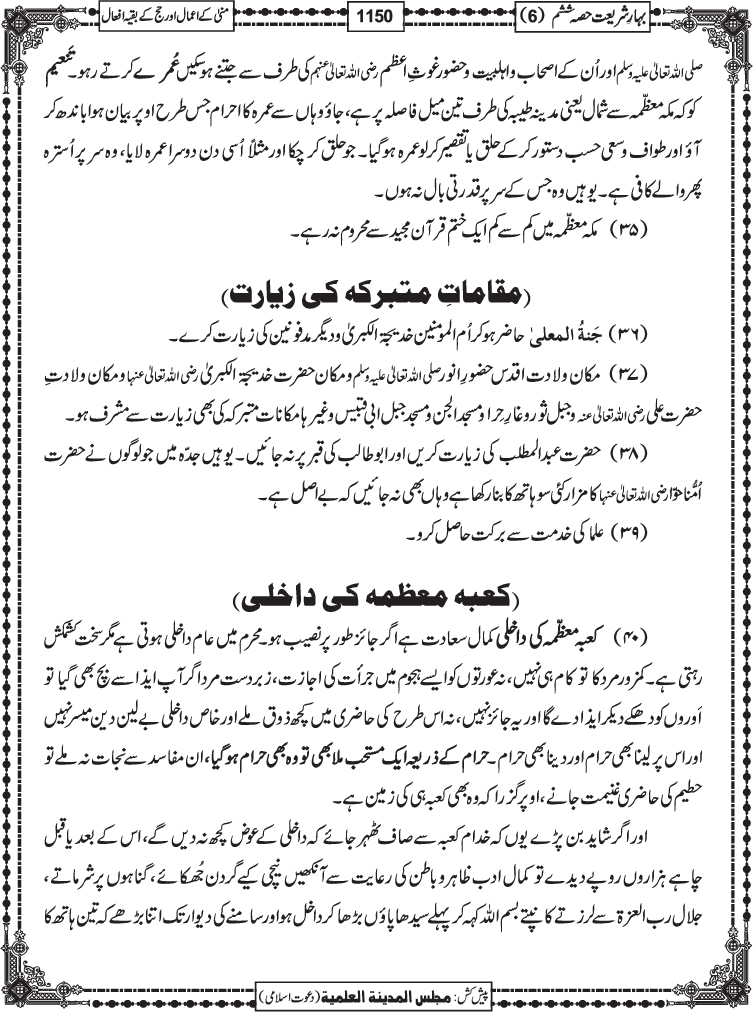 بہار شریعت حصہ ششم (6)
1150
منیٰ کے اعمال اور حج کے بقیہ افعال
صلی اللہ تعالیٰ علیہ وسلم اور اُن کے اصحاب و اہلبیت و حضور غوثِ اعظم رضی اللہ تعالیٰ عنہم کی طرف سے جتنے ہوسکیں عُمرے کرتے رہو۔ تَنْعِیم
کو کہ مکہ معظّمہ سے شمال یعنی مدینہ طیبہ کی طرف تین میل فاصلہ پر ہے، جاؤ وہاں سے عمرہ کا احرام جس طرح اوپر بیان ہوا باندھ کر
آؤ اور طواف و سعی حسب دستور کرکے حلق یا تقصیر کرلو عمرہ ہوگیا۔ جو حلق کر چکا اور مثلاً اُسی دن دوسرا عمرہ لایا، وہ سر پر اُسترہ
پھروالے کافی ہے۔ یوہیں وہ جس کے سر پر قدرتی بال نہ ہوں۔
(۳۵) مکہ معظّمہ میں کم سے کم ایک ختم قرآن مجید سے محروم نہ رہے۔
(مقاماتِ متبرکہ کی زیارت)
(۳۶) جَنۃُ المعلیٰ حاضر ہو کر اُم المومنین خدیجۃ الکبریٰ و دیگر مدفونین کی زیارت کرے۔
(۳۷) مکان ولادت اقدس حضورِ انور صلی اللہ تعالیٰ علیہ وسلم و مکان حضرت خدیجۃ الکبریٰ رضی اللہ تعالیٰ عنہا و مکان ولادتِ
حضرت علی رضی اللہ تعالیٰ عنہ و جبل ثور و غارِ حِرا و مسجد الجن و مسجد جبل ابی قبیس وغیرہا مکانات متبرکہ کی بھی زیارت سے مشرف ہو۔
(۳۸) حضرت عبدالمطلب کی زیارت کریں اور ابوطالب کی قبر پر نہ جائیں۔ یوہیں جدّہ میں جو لوگوں نے حضرت
اُمُّنا حوّا رضی اللہ تعالیٰ عنہا کا مزار کئی سو ہاتھ کا بنا رکھا ہے وہاں بھی نہ جائیں کہ بے اصل ہے۔
(۳۹) علما کی خدمت سے برکت حاصل کرو۔
(کعبہ معظمہ کی داخلی)
(۴۰) کعبہ معظّمہ کی داخلی کمال سعادت ہے اگر جائز طور پر نصیب ہو۔ محرم میں عام داخلی ہوتی ہے مگر سخت کشمکش
رہتی ہے۔ کمزور مرد کا تو کام ہی نہیں، نہ عورتوں کو ایسے ہجوم میں جرأت کی اجازت، زبردست مرد اگر آپ ایذا سے بچ بھی گیا تو
اَوروں کو دھکے دیکر ایذا دے گا اور یہ جائز نہیں، نہ اس طرح کی حاضری میں کچھ ذوق ملے اور خاص داخلی بے لین دین میسر نہیں
اور اس پر لینا بھی حرام اور دینا بھی حرام۔ حرام کے ذریعہ ایک مستحب ملا بھی تو وہ بھی حرام ہوگیا، ان مفاسد سے نجات نہ ملے تو
حطیم کی حاضری غنیمت جانے، اوپر گزرا کہ وہ بھی کعبہ ہی کی زمین ہے۔
اور اگر شاید بن پڑے یوں کہ خدام کعبہ سے صاف ٹھہر جائے کہ داخلی کے عوض کچھ نہ دیں گے، اس کے بعد یا قبل
چاہے ہزاروں روپے دیدے تو کمال ادب ظاہر و باطن کی رعایت سے آنکھیں نیچی کیے گردن جُھکائے، گناہوں پر شرماتے،
جلال رب العزۃ سے لرزتے کانپتے بسم اللہ کہہ کر پہلے سیدھا پاؤں بڑھا کر داخل ہو اور سامنے کی دیوار تک اتنا بڑھے کہ تین ہاتھ کا
پیش کش: مجلس المدینۃ العلمیۃ (دعوت اسلامی)